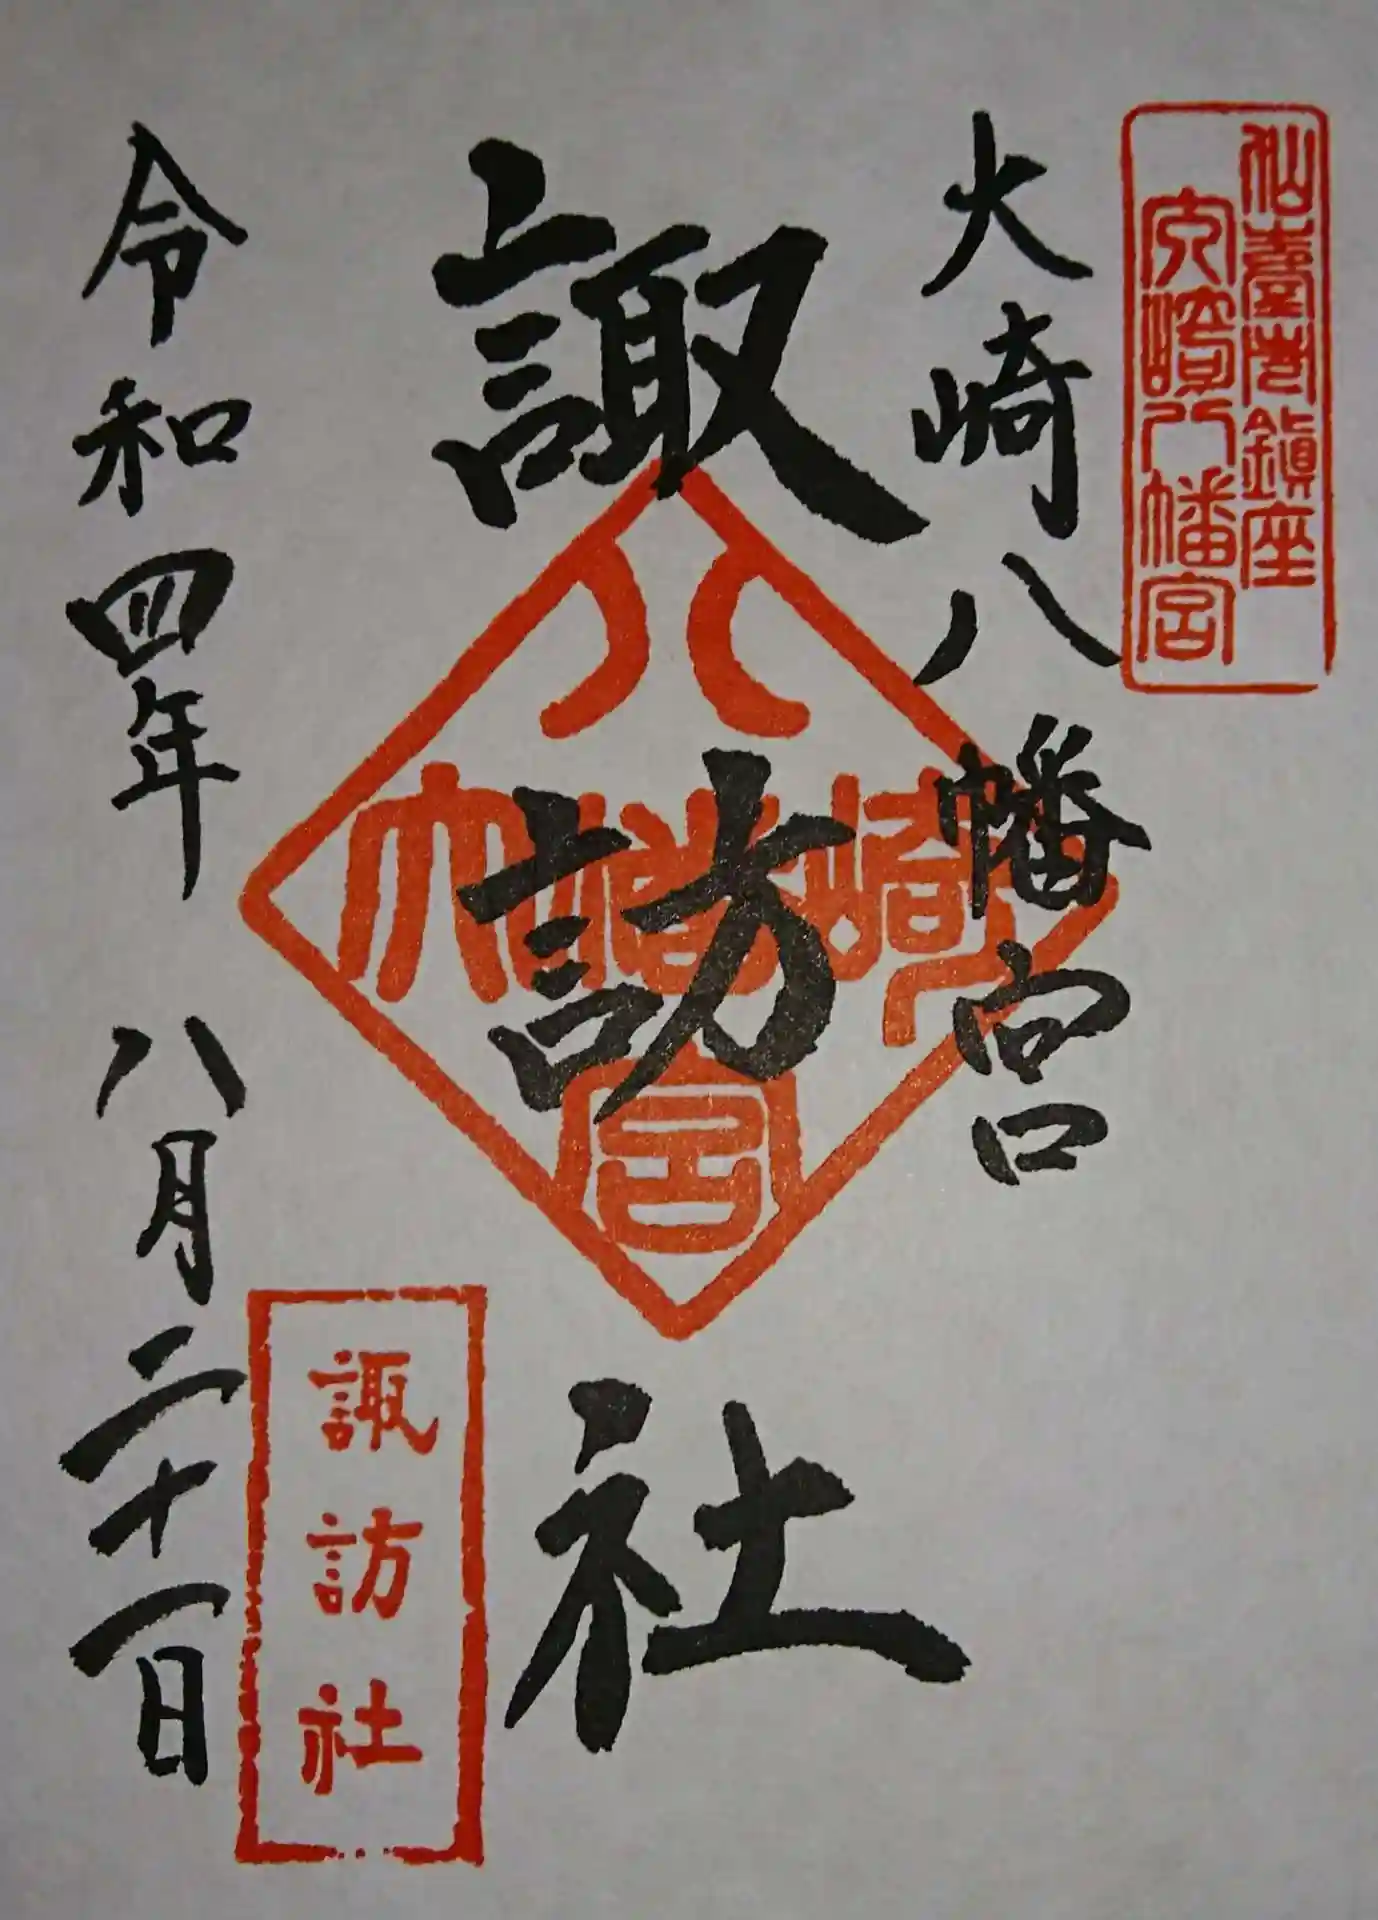 仙臺市鎮座
大崎八幡宮
大崎八幡宮
諏訪社
八
大幡崎
宮
諏訪社
令和四年 八月二十一日